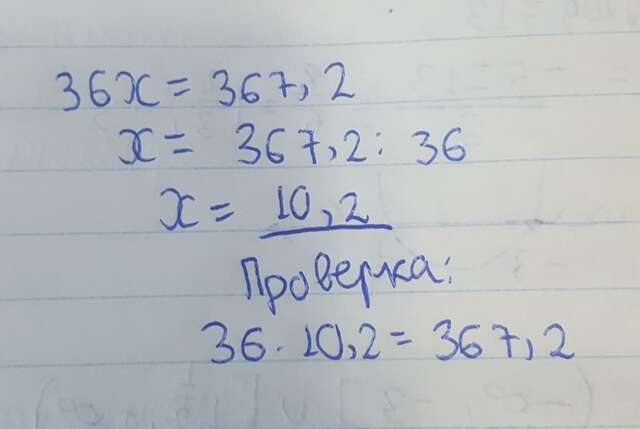 36x = 367,2
x = 367,2 : 36
x = 10,2
Проверка:
36 · 10,2 = 367,2